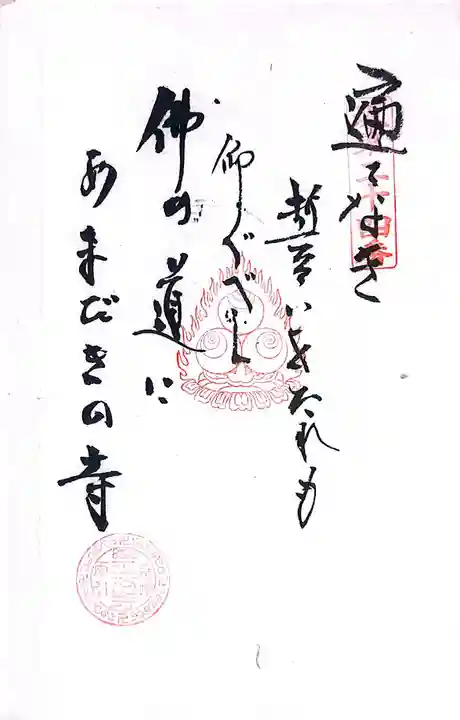 遍だてなき
誓いをたれも
仰ぐべし
佛の道に
あまびきの寺